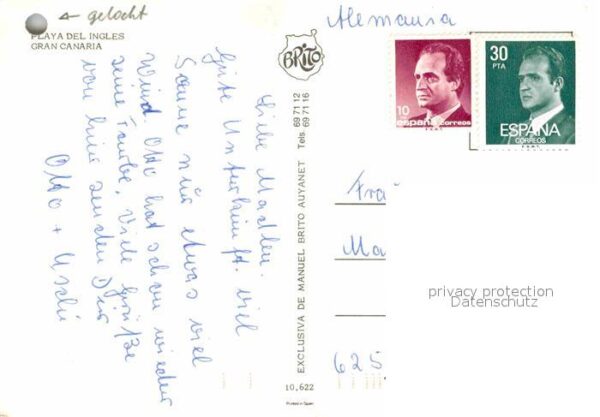 ← gelocht
PLAYA DEL INGLES
GRAN CANARIA
Liebe Madlen.
Gute Unterkunft. viel
Sonne nur etwas viel
Wind Otto hat schon wieder
seine Farbe, Viele Grüße
von hier senden Dir
Otto + Uschi
BRITO
EXCLUSIVA DE MANUEL BRITO AUYANET Tels. 69 71 12
69 71 16
10,622
Printed in Spain
Alemania
10
españa correos
30
PTA
ESPAÑA
CORREOS
Fra
Ma
625
privacy protection
Datenschutz